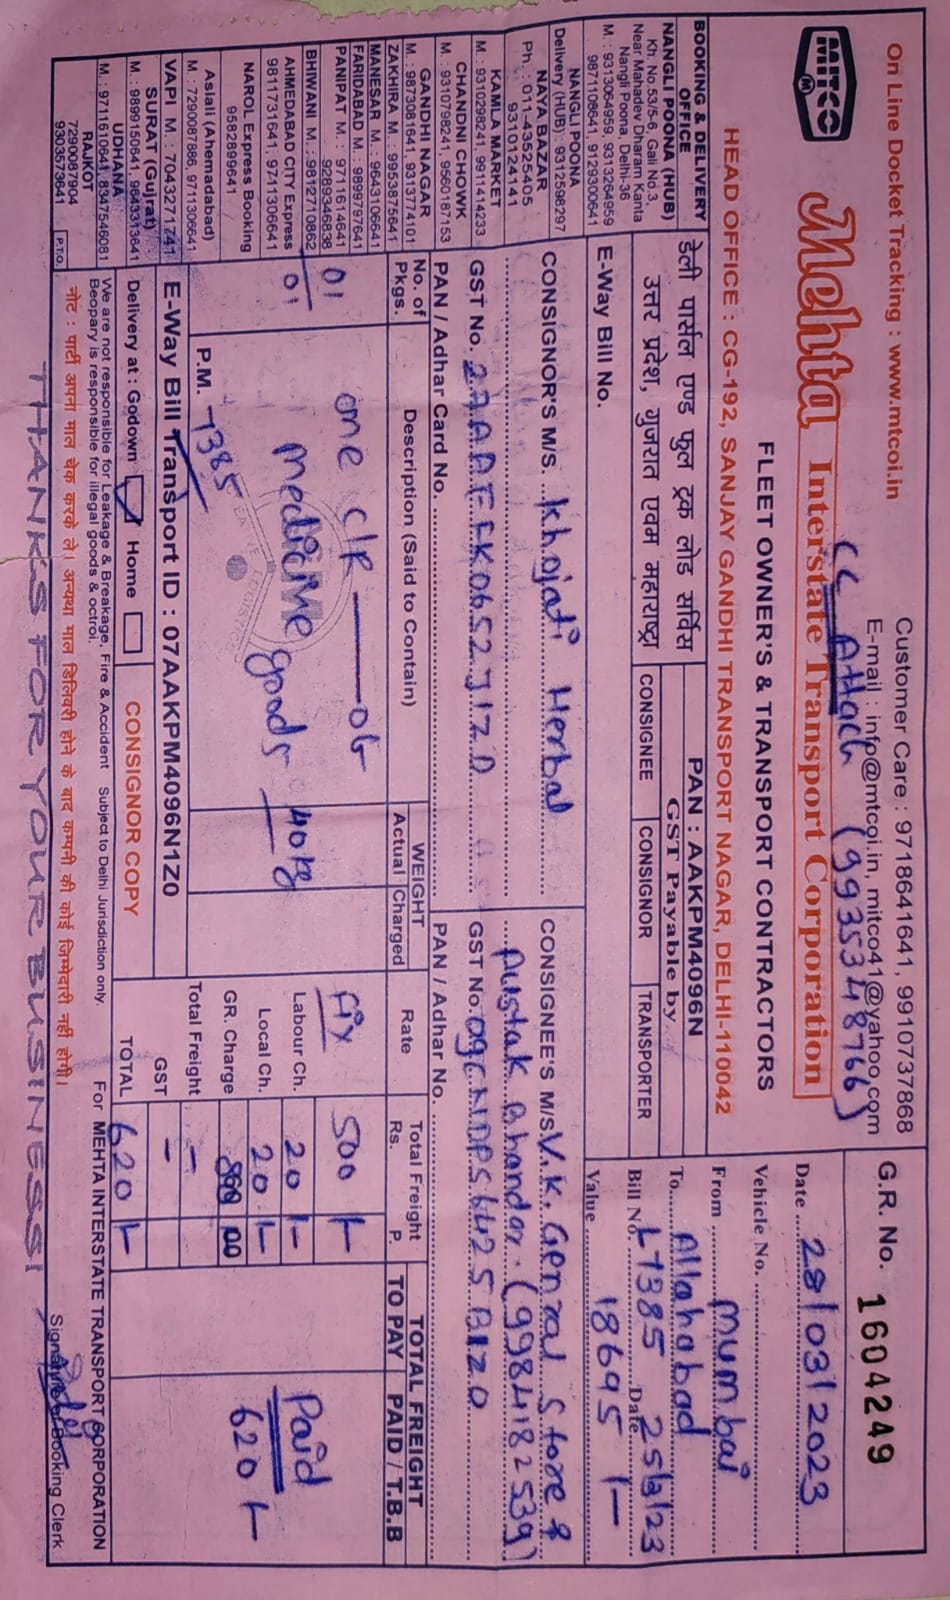 On Line Docket Tracking : www.mtcoi.in
Customer Care : 9718641641, 9910737868
E-mail : info@mtcoi.in, mitco41@yahoo.com
MITCO
M
CC Attach (9935348766)
Mehta Interstate Transport Corporation
FLEET OWNER'S & TRANSPORT CONTRACTORS
HEAD OFFICE : CG-192, SANJAY GANDHI TRANSPORT NAGAR, DELHI-110042
G.R. No. 1604249
Date 28/03/2023
Vehicle No.
From mumbai
To Allahabad
Bill No. L7385 Date
Value 18695/-
BOOKING & DELIVERY
OFFICE
NANGLI POONA (HUB)
Kh. No.53/5-6, Gali No.3,
Near Mahadev Dharam Kanta
Nangli Poona, Delhi-36
M. : 9313064959, 9313264959
9871108641, 9129300641
NANGLI POONA
Delivery (HUB) : 9312598297
NAYA BAZAR
Ph. : 011-43525405
9310124141
KAMLA MARKET
M. : 9310298241, 9911414233
CHANDNI CHOWK
M. : 9310798241, 9560118753
GANDHI NAGAR
M. : 9873081641, 9313774101
ZAKHIRA M. : 9953875641
MANESAR M. : 9643106641
FARIDABAD M. : 9899797641
PANIPAT M. : 9711614641
9289346838
BHIWANI M. : 9812710862
AHMEDABAD CITY Express
9811731641, 9741306641
NAROL Express Booking
9582899641
Asiali (Ahemadabad)
M. : 7290087886, 9711306641
VAPI M. : 7043271741
SURAT (Gujrat)
M. : 9899150641, 9643313641
UDHANA
M. : 9711610641, 8347546081
RAJKOT
7290087904
9303573641
P.T.O.
डेली पार्सल एण्ड फुल ट्रक लोड सर्विस
उत्तर प्रदेश, गुजरात एवम महाराष्ट्रा
PAN : AAKPM4096N
GST Payable by
CONSIGNEE CONSIGNOR TRANSPORTER
E-Way Bill No.
CONSIGNOR'S M/S. khojati Herbal
GST No. 27AAFFK0652J1ZD
PAN / Adhar Card No.
CONSIGNEE'S M/s V.K. Genral Store &
Pustak Bhandar (9984182539)
GST No. 09CNDPS6425B1Z0
PAN / Adhar No.
No. of Pkgs. Description (Said to Contain) WEIGHT Actual Charged Rate Total Freight Rs. P. TOTAL FREIGHT TO PAY PAID / T.B.B
01 one C/R
01 medicine goods 40 kg
P.M. 7385
Fix 500/-
Labour Ch. 20/-
Local Ch. 20/-
GR. Charge 100
Total Freight -
GST -
TOTAL 620/-
Paid
620/-
E-Way Bill Transport ID : 07AAKPM4096N1Z0
Delivery at : Godown Home
CONSIGNOR COPY
We are not responsible for Leakage & Breakage, Fire & Accident Subject to Delhi Jurisdiction only.
Beopary is responsible for illegal goods & octroi.
For MEHTA INTERSTATE TRANSPORT CORPORATION
नोट : पार्टी अपना माल चेक करके ले। अन्यथा माल डिलिवरी होने के बाद कम्पनी की कोई जिम्मेदारी नहीं होगी।
Signature of Booking Clerk
THANKS FOR YOUR BUSINESS!